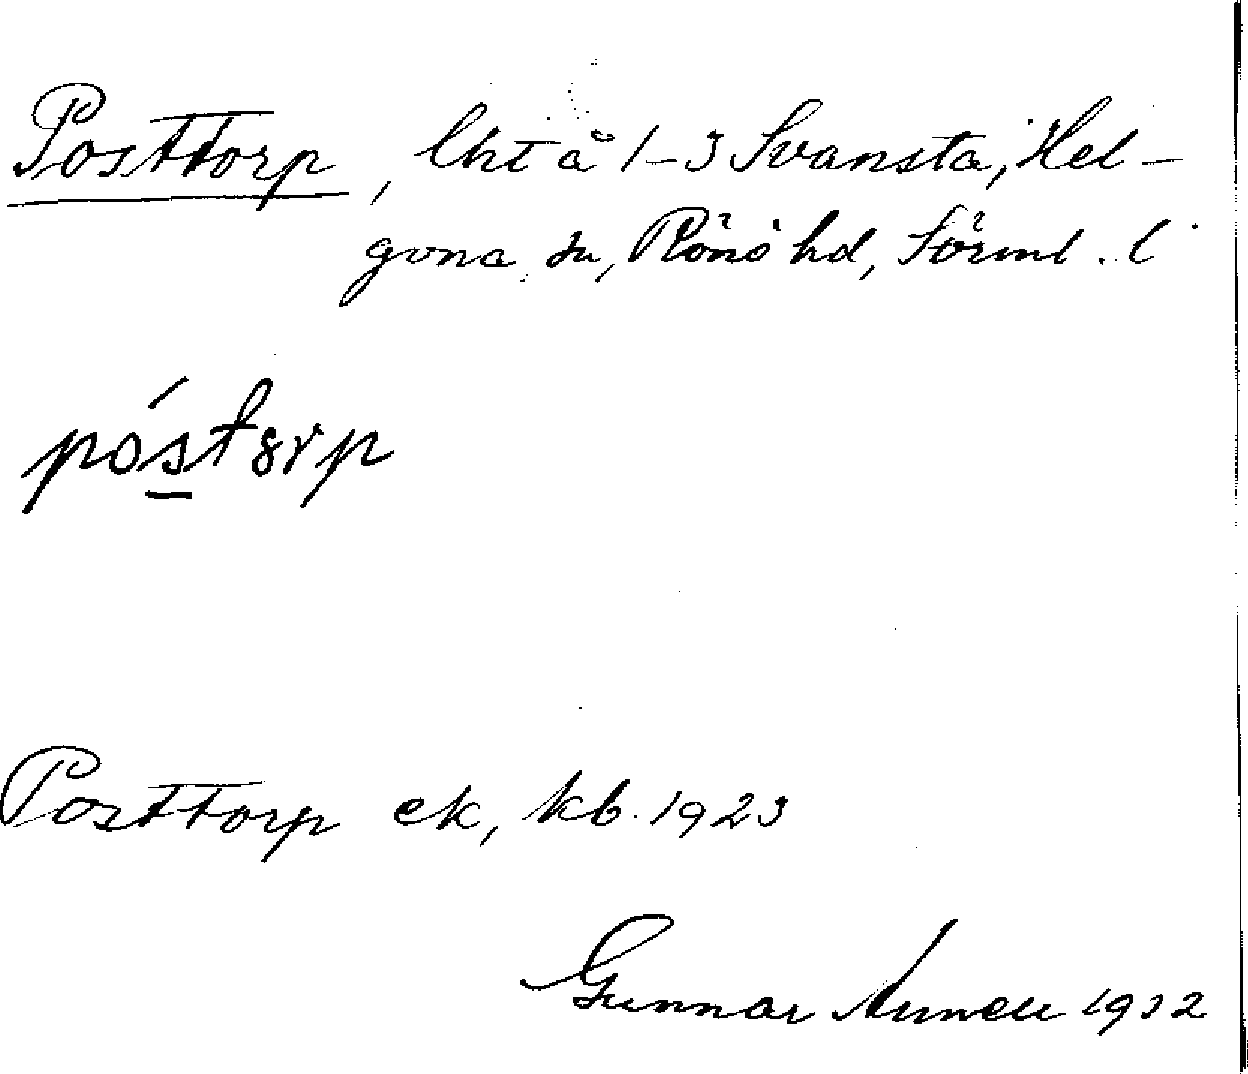 Posttorp, lht å 1–3 Svansta, Hel-
gona sn, Rönö hd, Sörml. l.
póstₒrp
Posttorp ek, kb. 1923
Gunnar 1932